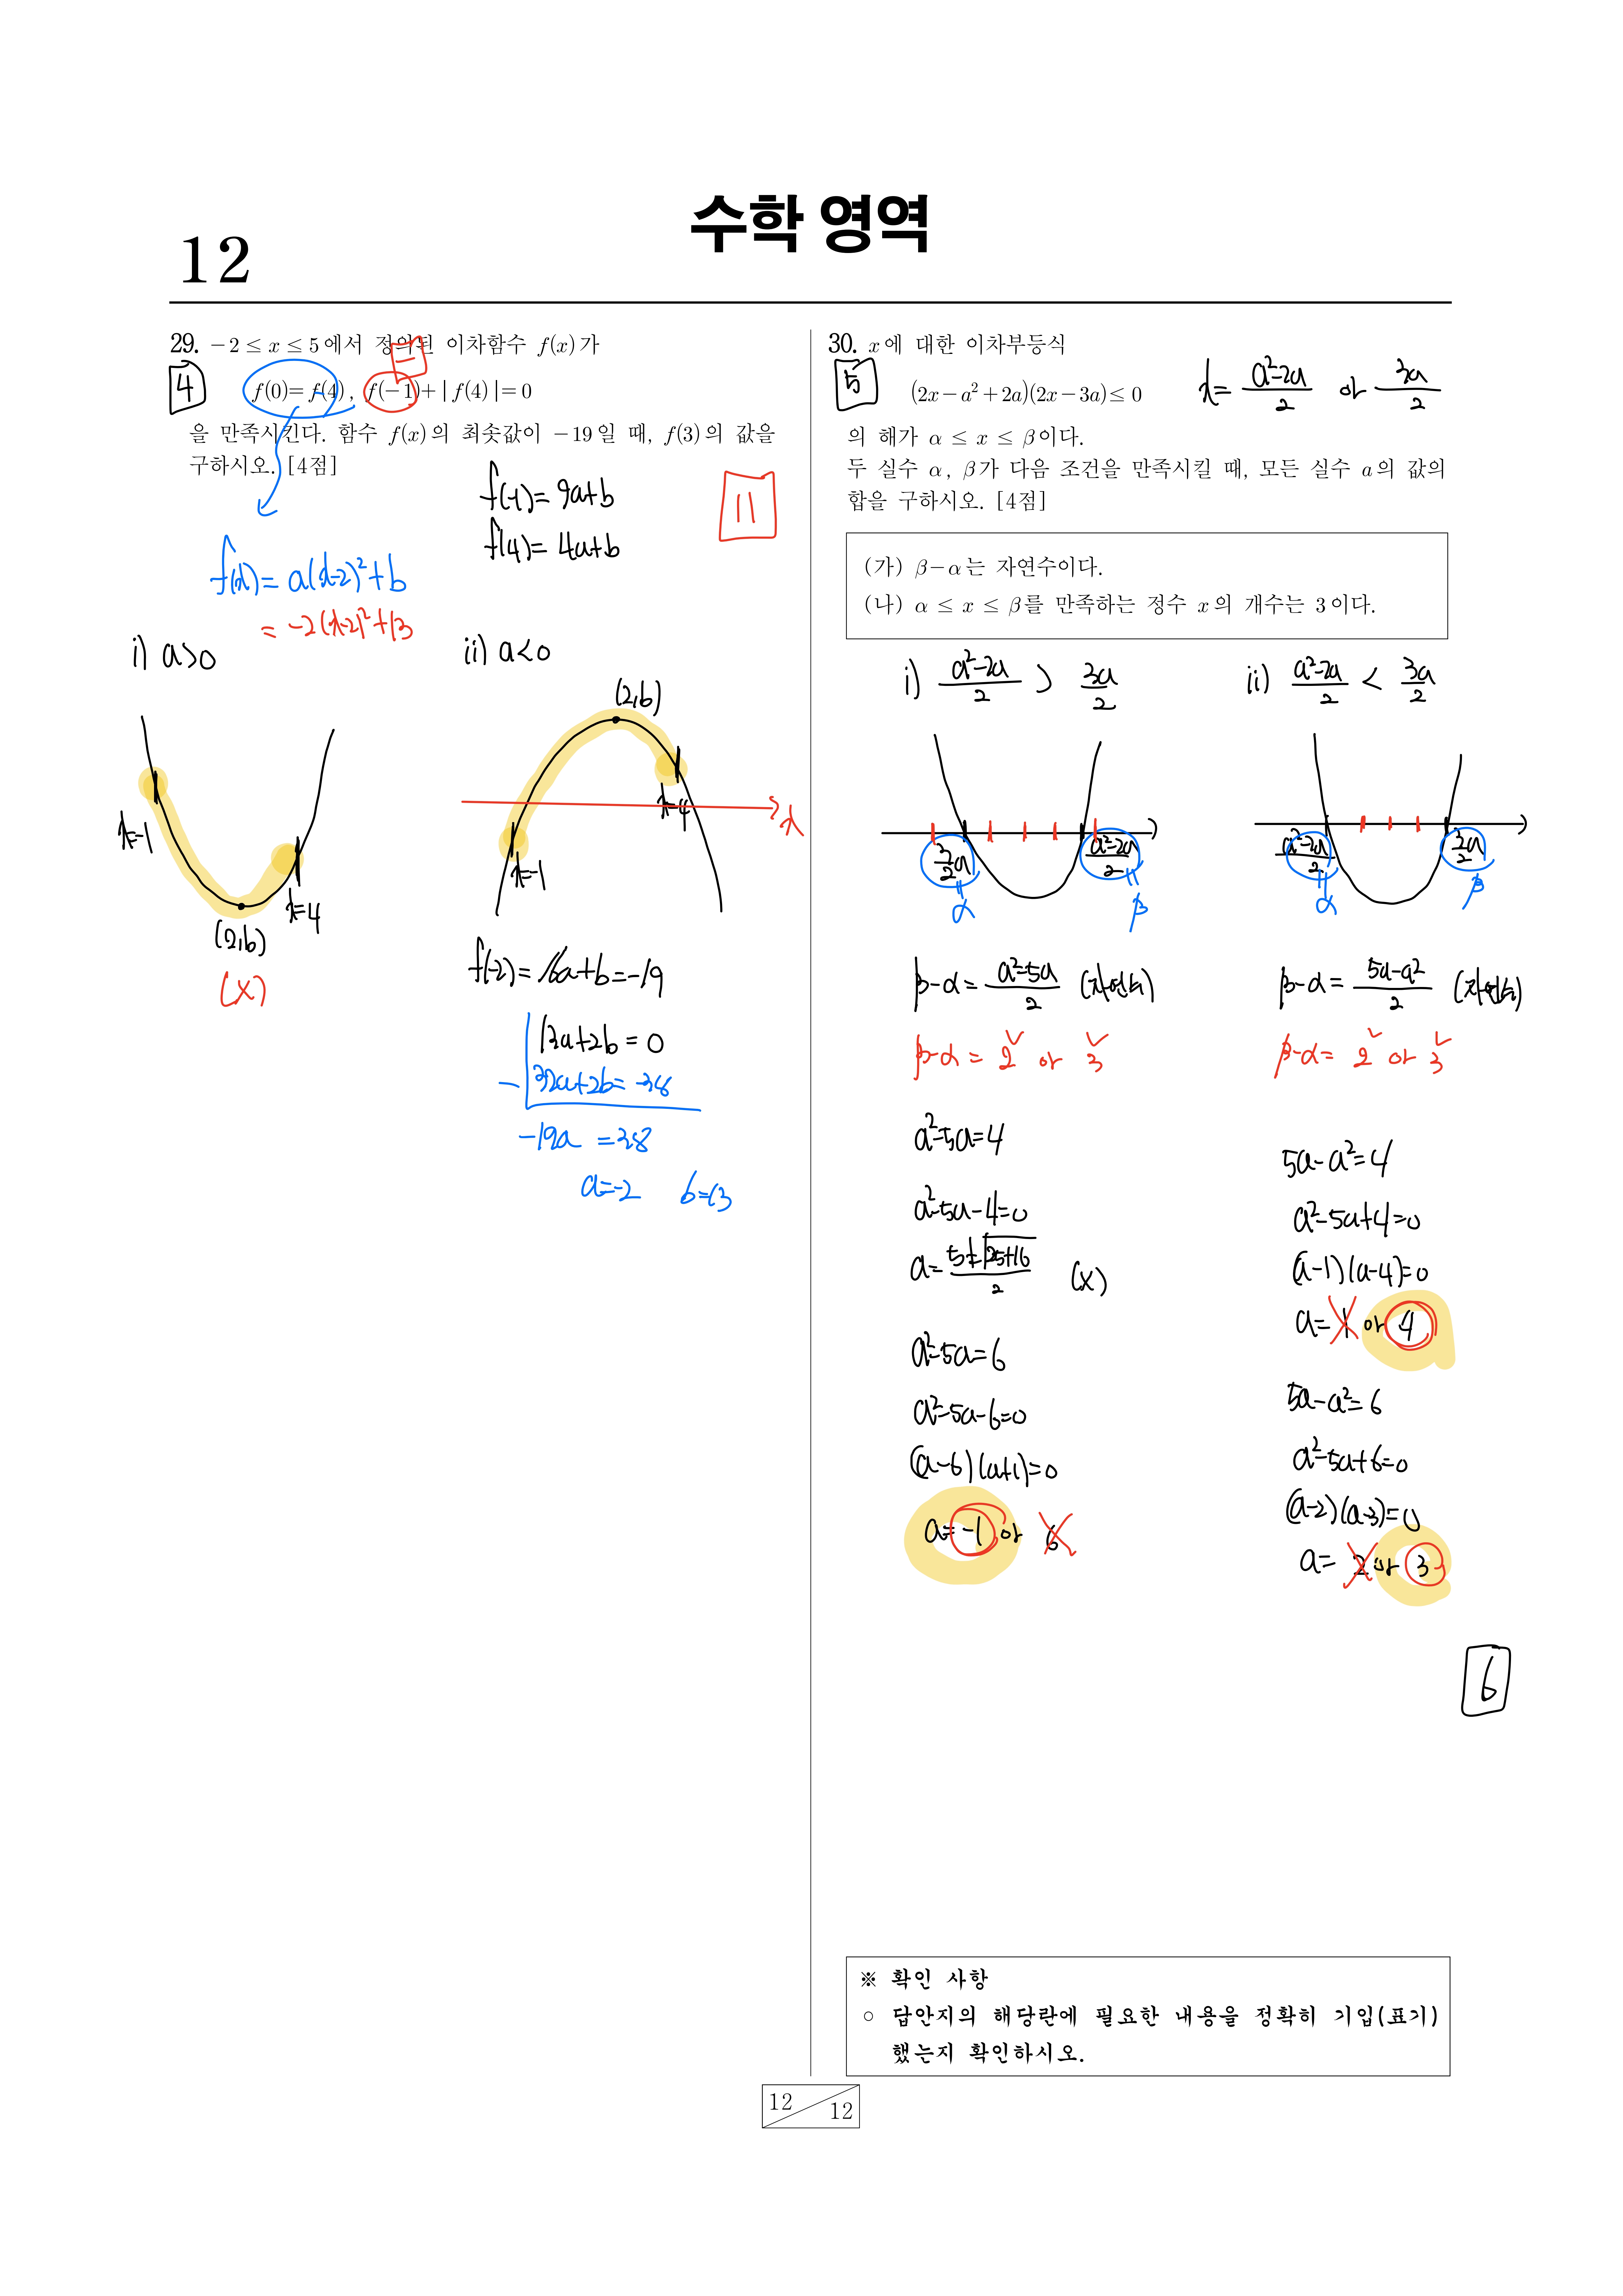 수학 영역
12
29. -2 ≤ x ≤ 5에서 정의된 이차함수 f(x)가
4
f(0)=f(4), f(-1)+|f(4)|=0
을 만족시킨다. 함수 f(x)의 최솟값이 -19일 때, f(3)의 값을
구하시오. [4점]
f(-1)= 9a+b
f(4)= 4a+b
11
f(x)= a(x-2)²+b
= -2(x-2)²+13
i) a>0
ii) a<0
x=-1
(2,b)
x=4
(X)
(2,b)
x=4
x
x=-1
f(-2)= 16a+b=-19
13a+2b=0
- 32a+2b=-38
-19a =38
a=-2 b=13
30. x에 대한 이차부등식
5
(2x-a²+2a)(2x-3a)≤0
x= (a²-2a)/2 or 3a/2
의 해가 α ≤ x ≤ β이다.
두 실수 α, β가 다음 조건을 만족시킬 때, 모든 실수 a의 값의
합을 구하시오. [4점]
(가) β-α는 자연수이다.
(나) α ≤ x ≤ β를 만족하는 정수 x의 개수는 3이다.
i) (a²-2a)/2 > 3a/2
3/2 a
(a²-2a)/2
α
β
β-α= (a²-5a)/2 (자연수)
β-α = 2 or 3
a²-5a=4
a²-5a-4=0
a= (5±√25+16)/2 (X)
a²-5a=6
a²-5a-6=0
(a-6)(a+1)=0
a=-1 or 6
ii) (a²-2a)/2 < 3a/2
(a²-2a)/2
3a/2
α
β
β-α= (5a-a²)/2 (자연수)
β-α= 2 or 3
5a-a²=4
a²-5a+4=0
(a-1)(a-4)=0
a=1 or 4
5a-a²=6
a²-5a+6=0
(a-2)(a-3)=0
a= 2 or 3
6
※ 확인 사항
○ 답안지의 해당란에 필요한 내용을 정확히 기입(표기)
했는지 확인하시오.
12
12